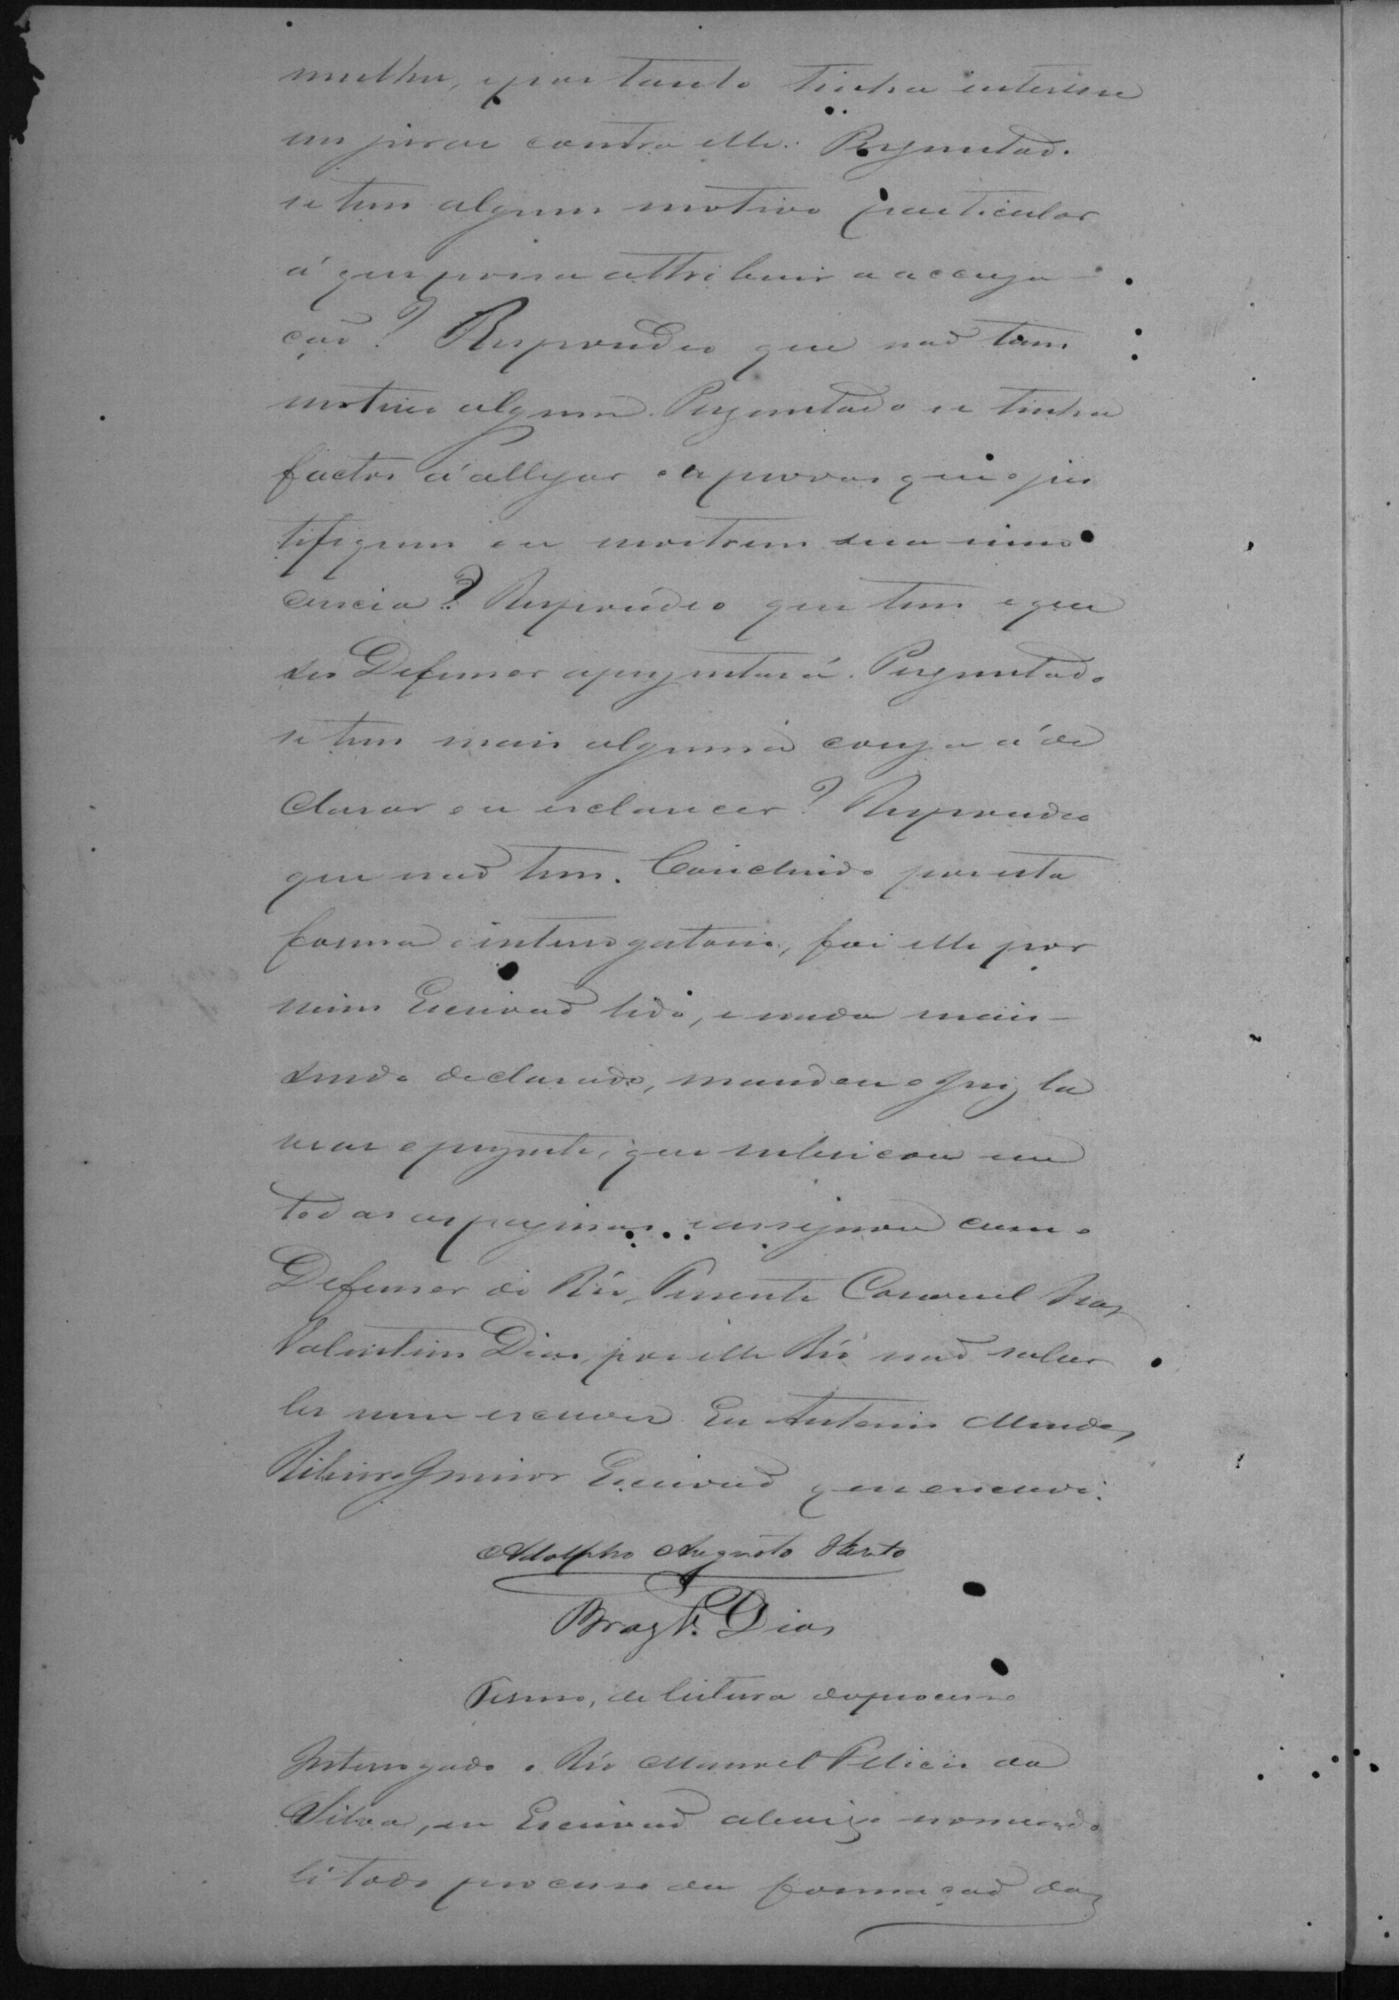 mulher, e por tanto tinha interesse
em jurar contra elle. Perguntado
se tem algum motivo particular
á que possa attribuir a accuza
ção? Respondeo que não tem
motivo algum. Perguntado se tinha
factos á allegar ou provas que o jus
tifiquem ou mostrem sua inno
cencia? Respondeo que tem e que
seo Defensor aprezentará. Perguntado
se tem mais alguma couza á de
clarar ou esclarecer? Respondeo
que não tem. Concluido por esta
forma o interrogatorio, foi elle por
mim Escrivão lido, e nada mais
sendo declarado, mandou o Juiz la
vrar o prezente, que rubricou em
todas as paginas e assignou com o
Defensor do Réo, Tenente Coronel Braz
Valentim Dias, por elle Réo não saber
ler nem escrever. Eu Antonio Mendes
Ribeiro Junior Escrivão que escrevi.
Adolpho Augusto
Braz V. Dias
Termo de leitura do processo
Interrogado o Réo Manoel Felicio da
Silva, eu Escrivão abaixo nomeado
li todo processo da formação da